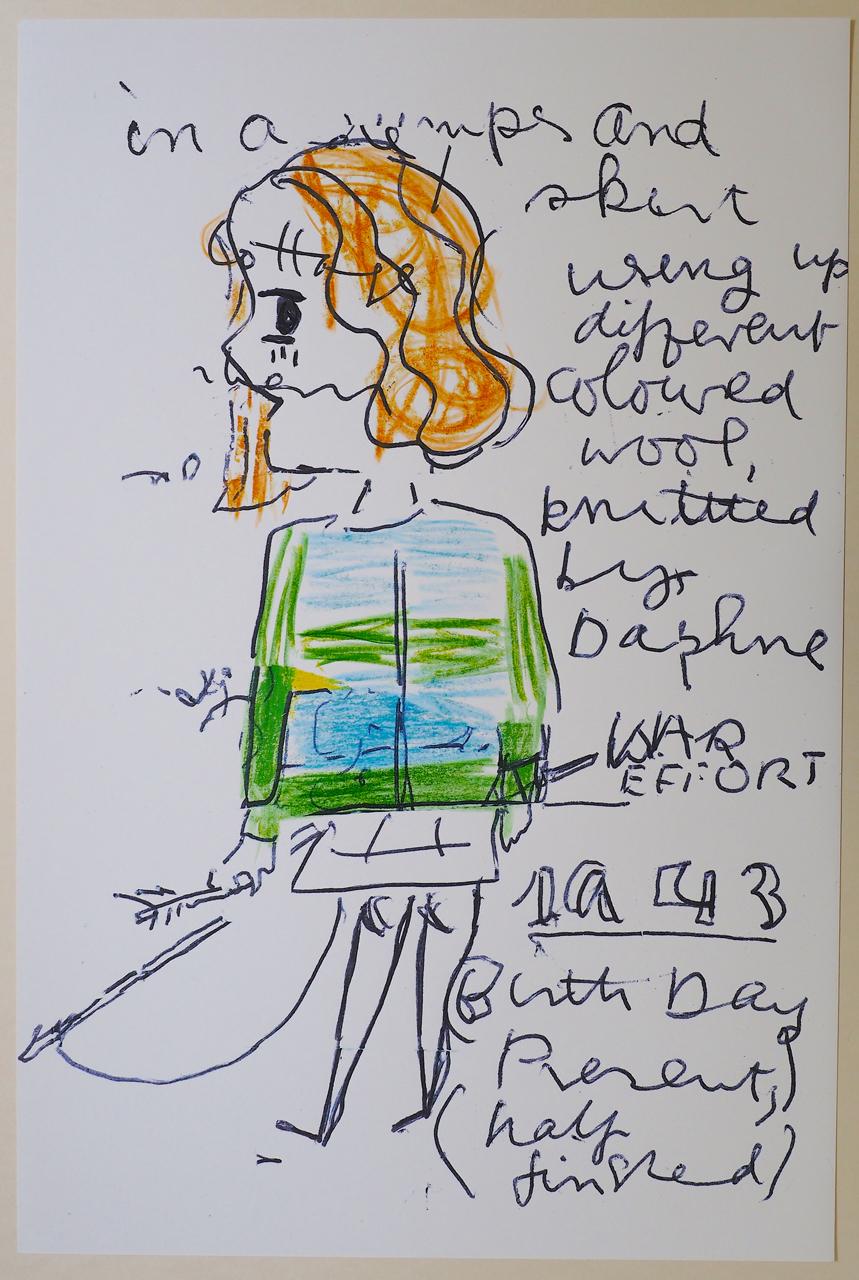 in a and
skirt
using up
different
coloured
wool,
knitted
by
Daphne
WAR
EFFORT
1943
Birth Day
Present,
(half
finished)